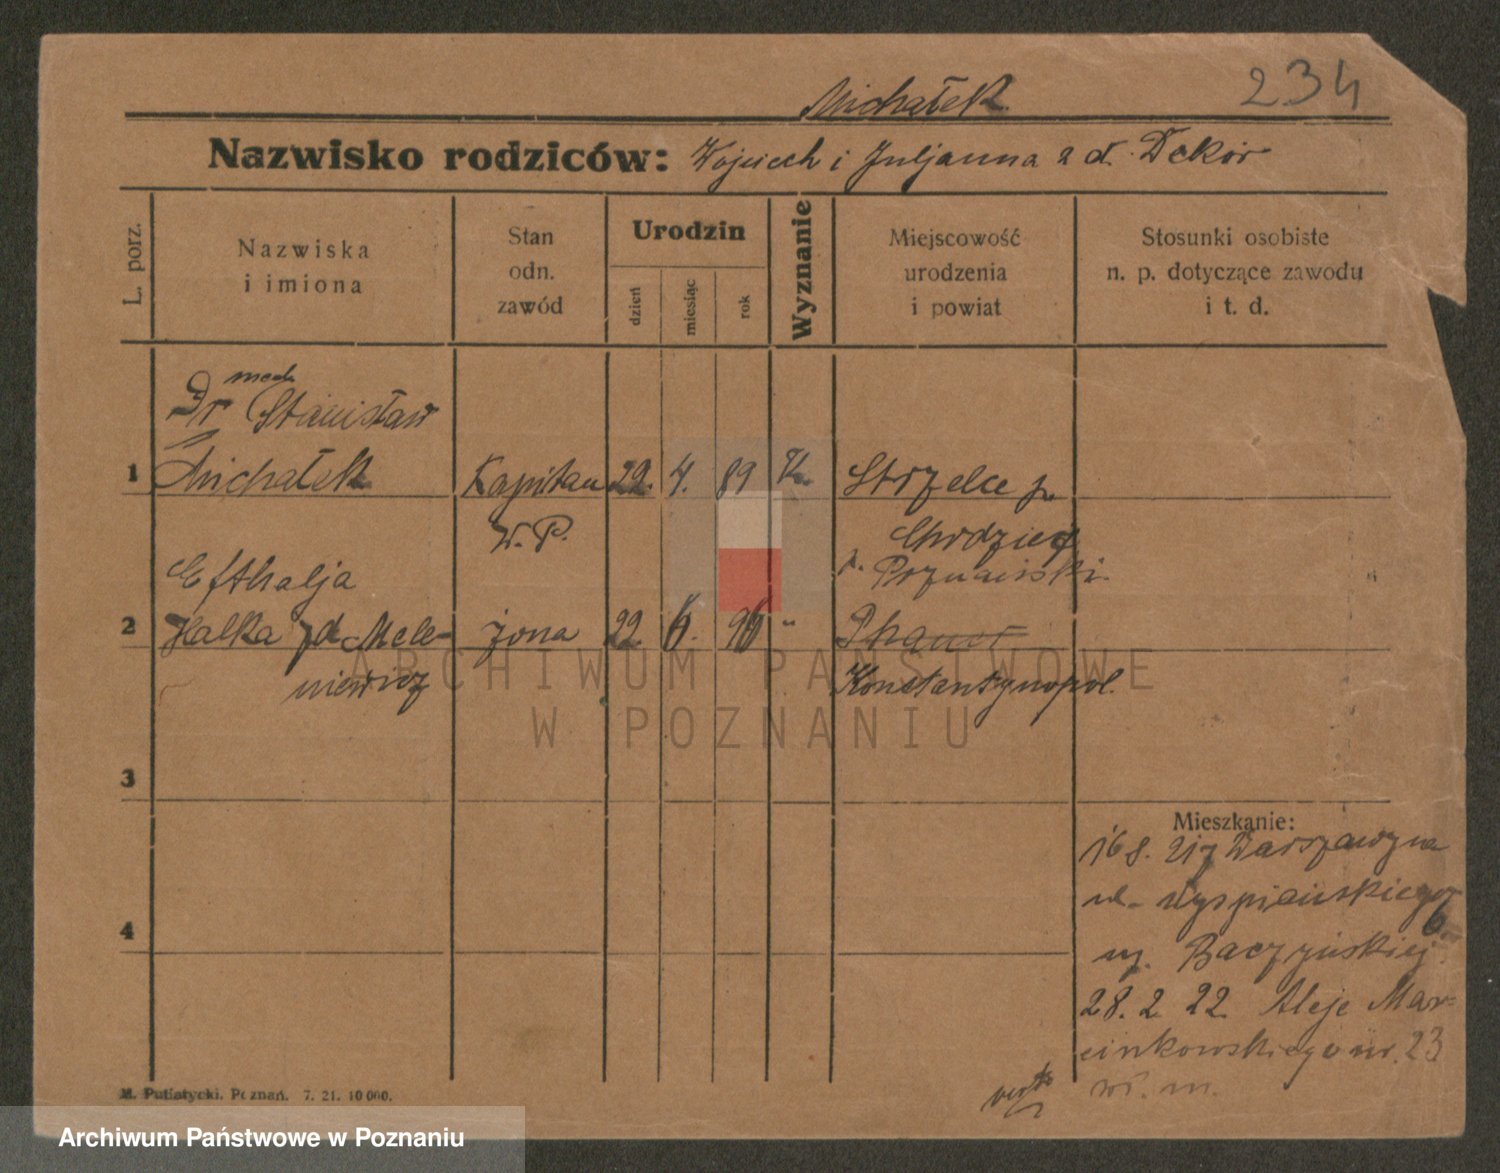 234
Michałek
Nazwisko rodziców: Wojciech i Juljanna z d. Dekór
L. porz.
Nazwiska i imiona
Stan odn. zawód
Urodzin
dzień
miesiąc
rok
Wyznanie
Miejscowość urodzenia i powiat
Stosunki osobiste n. p. dotyczące zawodu i t. d.
Dr med. Stanisław
1 Michałek Kapitan 22. 4. 89 K. Strzelce p.
W. P. Chodzież
Efthalja p. Poznański
2 Halka z d. Mele- żona 22 6. 96 " 
niewicz Konstantynopol.
3
Mieszkanie:
16 8. 21 z Warszawy na
ul. Wyspiańskiego
6.
4
u p. Baczyńskiej
28. 2. 22 Aleje Mar-
cinkowskiego nr. 23
M. Putiatycki, Poznań. 7. 21. 10 000.
ARCHIWUM PAŃSTWOWE
W POZNANIU
Archiwum Państwowe w Poznaniu